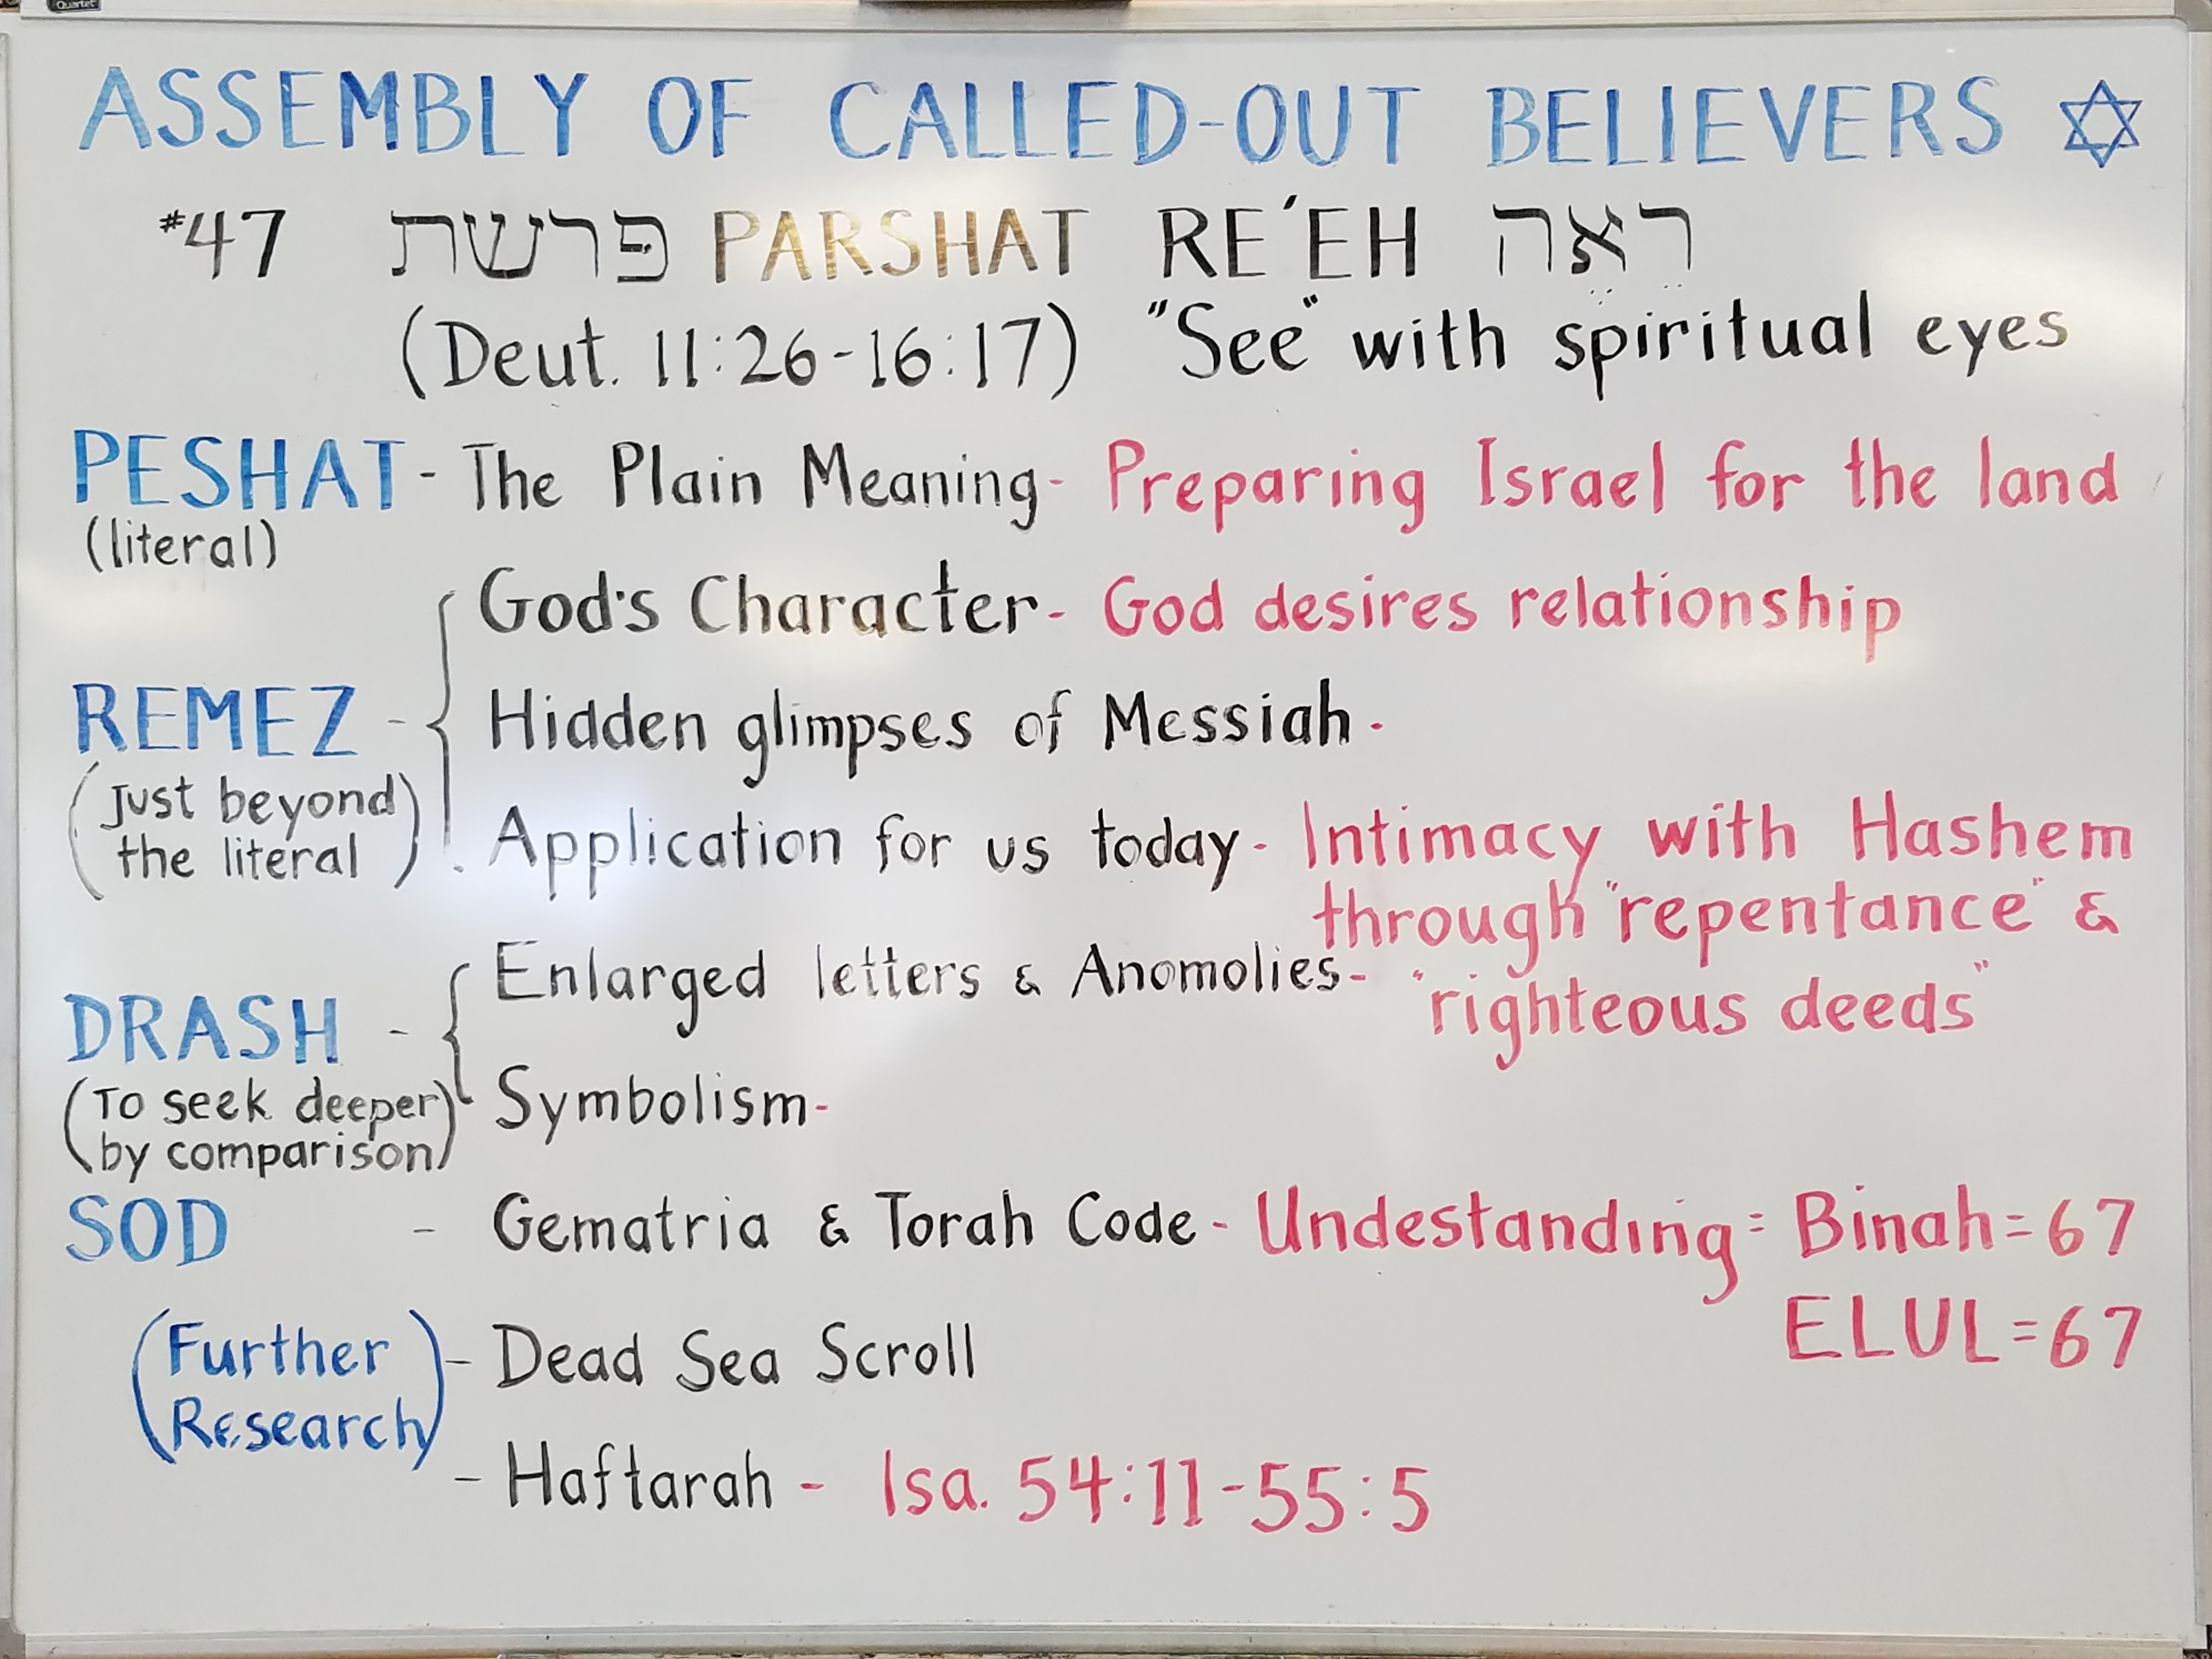 Quartet
ASSEMBLY OF CALLED-OUT BELIEVERS ✡
#47 פרשת PARSHAT RE'EH ראה
(Deut. 11:26-16:17) "See" with spiritual eyes
PESHAT - The Plain Meaning - Preparing Israel for the land
(literal)
God's Character - God desires relationship
REMEZ - Hidden glimpses of Messiah -
(Just beyond
the literal)
Application for us today - Intimacy with Hashem
through "repentance" &
"righteous deeds"
Enlarged letters & Anomolies -
DRASH -
(To seek deeper
by comparison)
Symbolism -
SOD - Gematria & Torah Code - Undestanding = Binah = 67
ELUL = 67
(Further
Research)
- Dead Sea Scroll
- Haftarah - Isa. 54:11-55:5